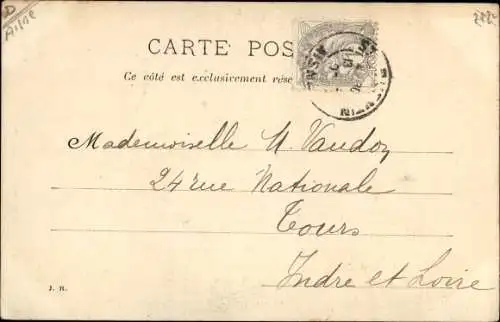 D
Aisne
CARTE POS
Ce côté est exclusivement rése
Mademoiselle H. Vaudoy
24 rue Nationale
Tours
Indre et Loire
J. H.